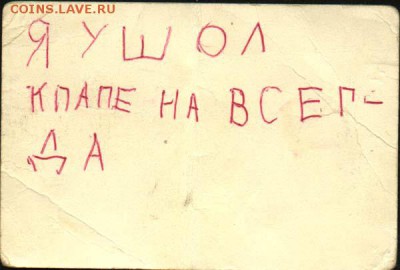 COINS.LAVE.RU
Я УШОЛ
КПАПЕ НА ВСЕГ-
ДА